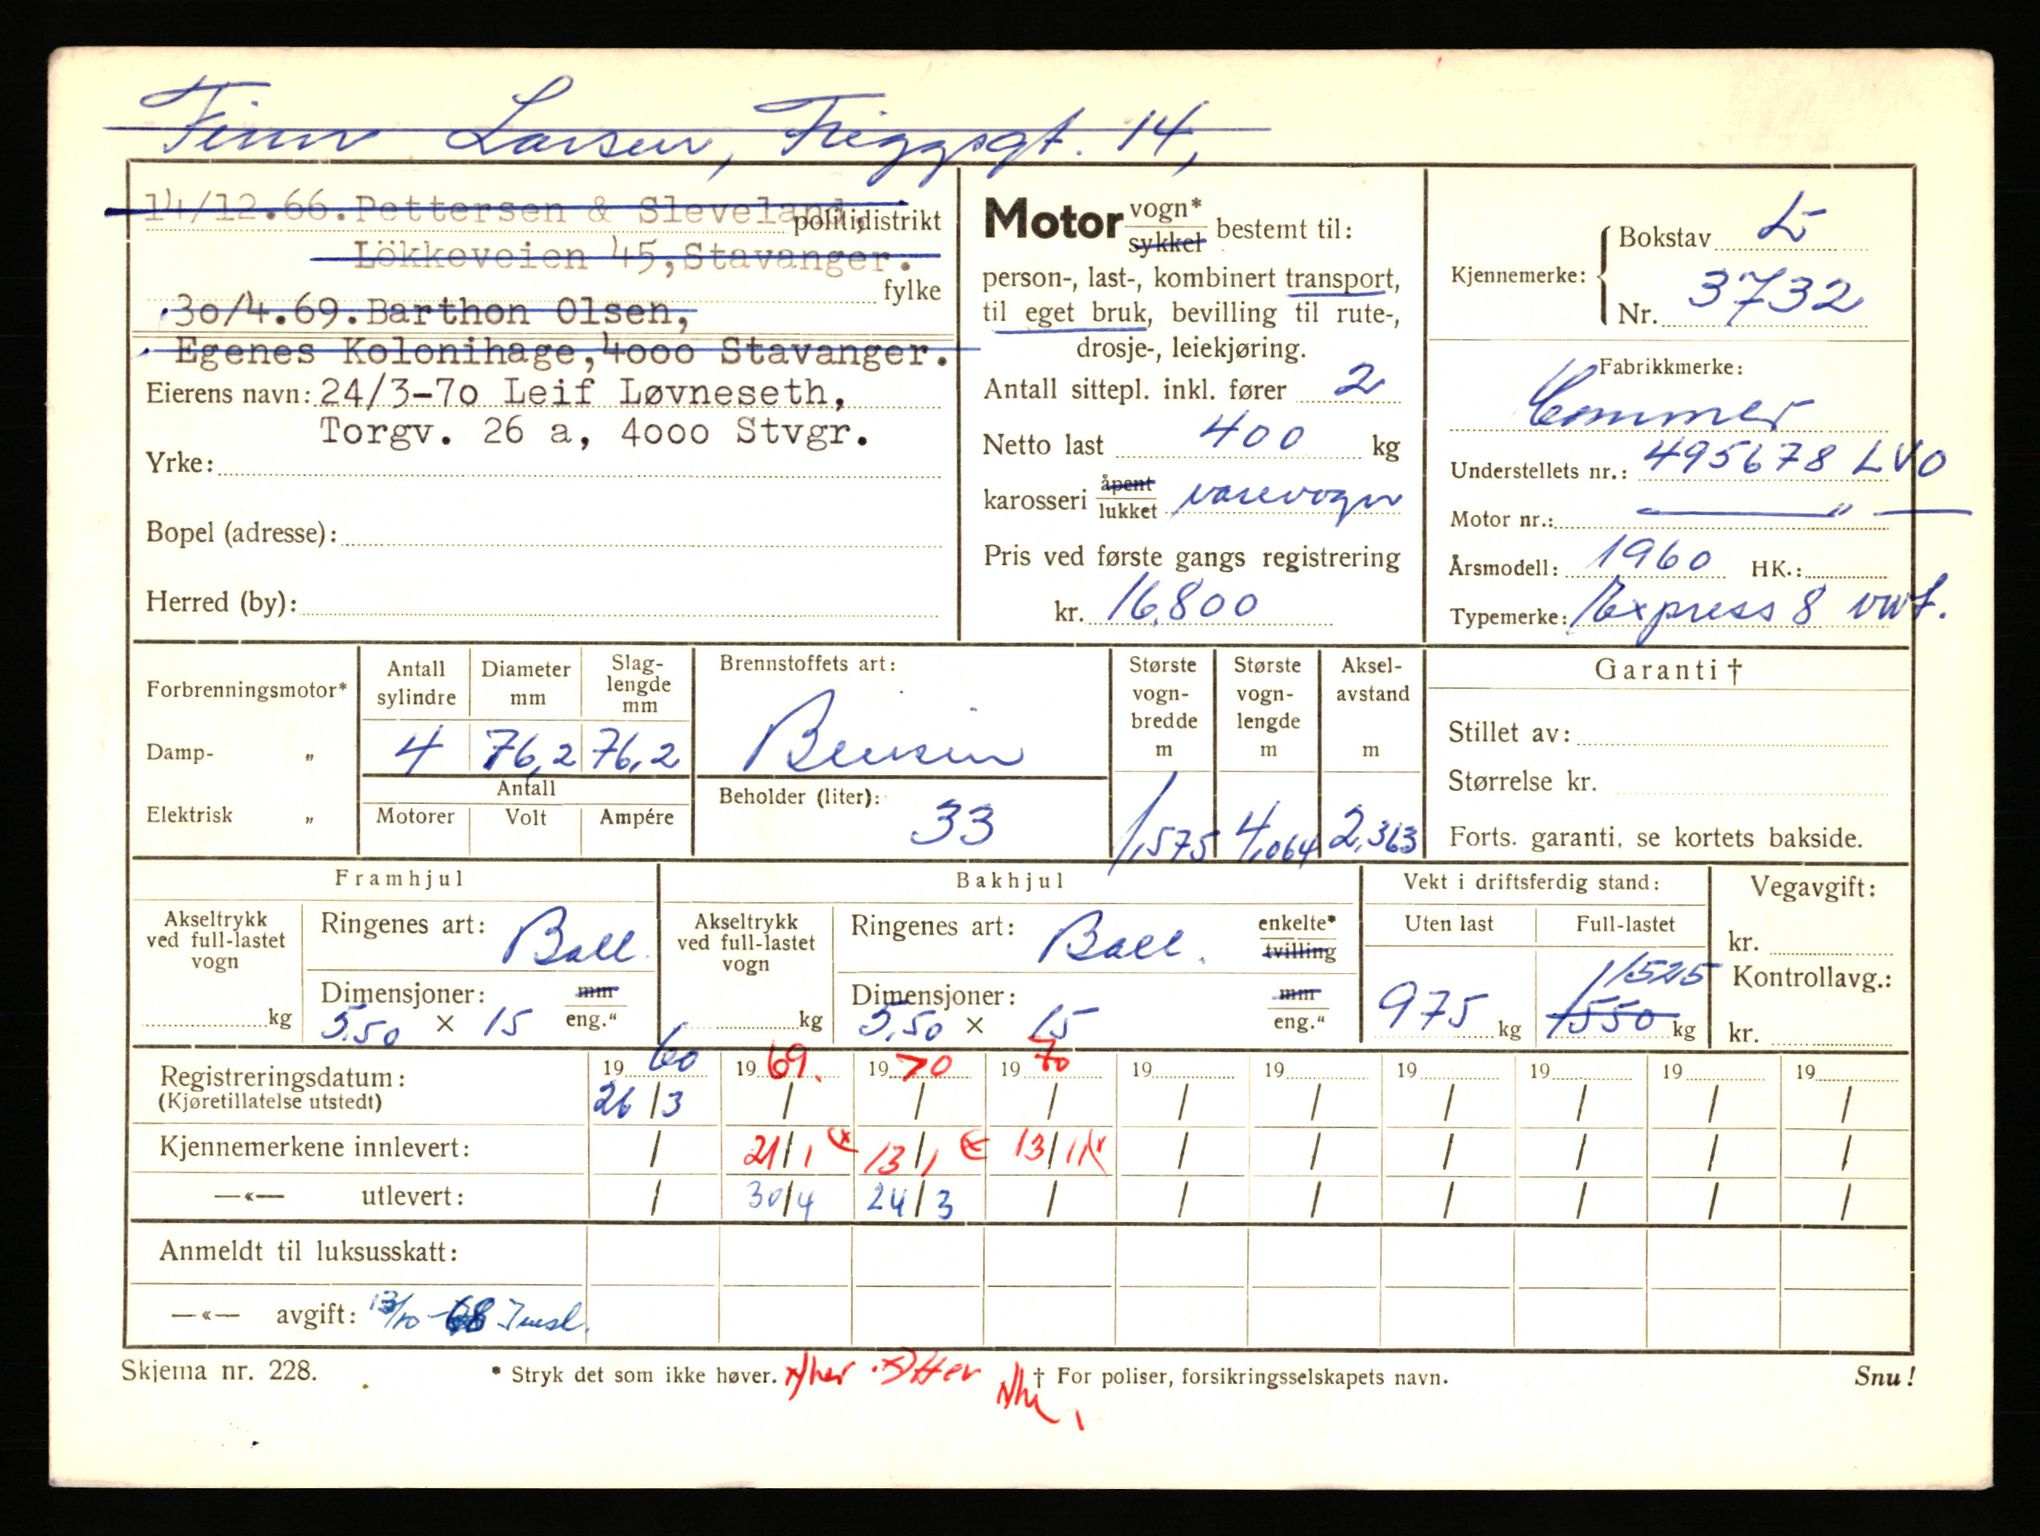 Finn Larsen, Friggsgt. 14,
14/12.66. Pettersen & Sleveland, politidistrikt
Lökkeveien 45, Stavanger.
fylke
30/4.69. Barthon Olsen,
Egenes Kolonihage, 4000 Stavanger.
Eierens navn: 24/3-70 Leif Løvneseth,
Torgv. 26 a, 4000 Stvgr.
Yrke:
Bopel (adresse):
Herred (by):
Motor vogn* sykkel bestemt til:
person-, last-, kombinert transport,
til eget bruk, bevilling til rute-,
drosje-, leiekjøring.
Antall sittepl. inkl. fører 2
Netto last 400 kg
karosseri åpent lukket varevogn
Pris ved første gangs registrering
kr. 16.800
Kjennemerke: Bokstav L
Nr. 3732
Fabrikkmerke:
Commer
Understellets nr.: 495678 LVO
Motor nr.: — " —
Årsmodell: 1960 HK.:
Typemerke: Express 8 vwt.
Forbrenningsmotor*
Damp- „
Elektrisk „
Antall sylindre
4
Diameter mm
76,2
Slag-lengde mm
76,2
Antall
Motorer Volt Ampére
Brennstoffets art:
Bensin
Beholder (liter):
33
Største vogn-bredde m
1,575
Største vogn-lengde m
4,064
Aksel-avstand m
2,363
Garanti †
Stillet av:
Størrelse kr.
Forts. garanti, se kortets bakside.
Framhjul
Akseltrykk ved full-lastet vogn
kg
Ringenes art: Ball.
Dimensjoner: mm
5,50 × 15 eng."
Bakhjul
Akseltrykk ved full-lastet vogn
kg
Ringenes art: Ball. enkelte* tvilling
Dimensjoner: mm
5,50 × 15 eng."
Vekt i driftsferdig stand:
Uten last Full-lastet
1525
975 kg 1550 kg
Vegavgift:
kr.
Kontrollavg.:
kr.
19 60 19 69. 19 70 19 70 19 19 19 19 19 19
Registreringsdatum: 26/3 / / / / / / / / /
(Kjøretillatelse utstedt)
Kjennemerkene innlevert: / 21/1 13/1 13/11 / / / / / /
—«— utlevert: / 30/4 24/3 / / / / / / /
Anmeldt til luksusskatt:
—«— avgift: 13/10-68
Skjema nr. 228. * Stryk det som ikke høver. x) her † For poliser, forsikringsselskapets navn. Snu!